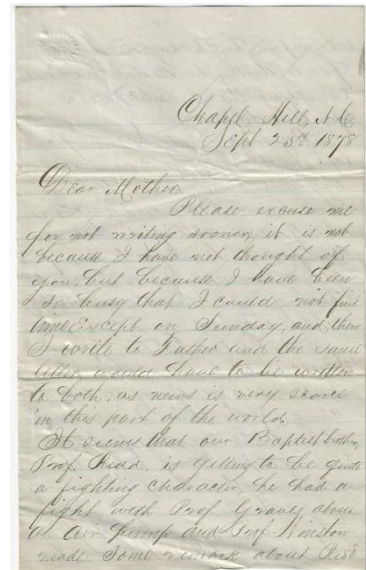 Chapel Hill, N.C.
Sept 23rd 1878
Dear Mother
Please excuse me
for not writing sooner, it is not
because I have not thought of
you, but because I have been
so busy that I could not find
time Except on Sunday, and then
I write to Father and the same
letter would have to be written
to both, as news is very scarce
in this part of the world.
It seems that our Baptist brother,
Prof. Redd, is getting to be quite
a fighting character, he had a
fight with Prof Graves about
an air pump and Prof Winston
made some remark about Redd